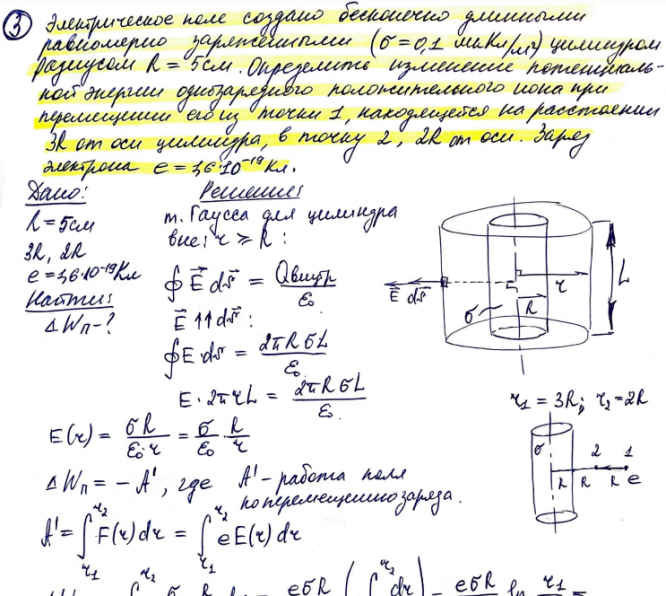 ③ Электрическое поле создано бесконечно длинными
равномерно заряженными (σ = 0,1 мкКл/м²) цилиндром
радиусом R = 5см. Определить изменение потенциаль-
ной энергии однозарядного положительного иона при
перемещении его из точки 1, находящейся на расстоянии
3R от оси цилиндра, в точку 2, 2R от оси. Заряд
электрона e = 1,6·10⁻¹⁹ Кл.
Дано:
R = 5см
3R, 2R
e = 1,6·10⁻¹⁹Кл
Найти:
ΔWп - ?
Решение:
т. Гаусса для цилиндра
вне: r ⩾ R :
∮ E⃗ dS⃗ = Qвнутр / ε₀
E⃗ ↑↑ dS⃗ :
∮ E dS = 2πRσL / ε₀
E · 2πrL = 2πRσL / ε₀
E⃗ dS⃗
σ
R
r
L
E(r) = σR / ε₀·r = σ/ε₀ · R/r
r₁ = 3R; r₂ = 2R
σ
2 1
R R R e
ΔWп = - A', где A' - работа поля
по перемещению заряда.
A' = ∫ r₁ r₂ F(r) dr = ∫ r₁ r₂ eE(r) dr